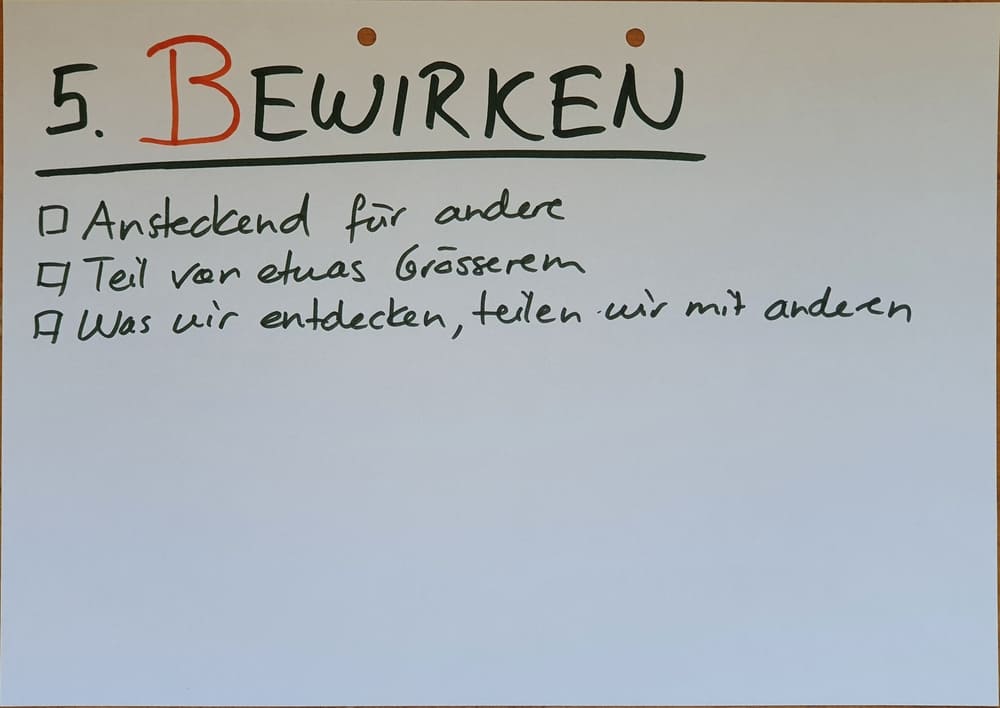 5. BEWIRKEN
☐ Ansteckend für andere
☐ Teil von etwas Grösserem
☐ Was wir entdecken, teilen wir mit anderen